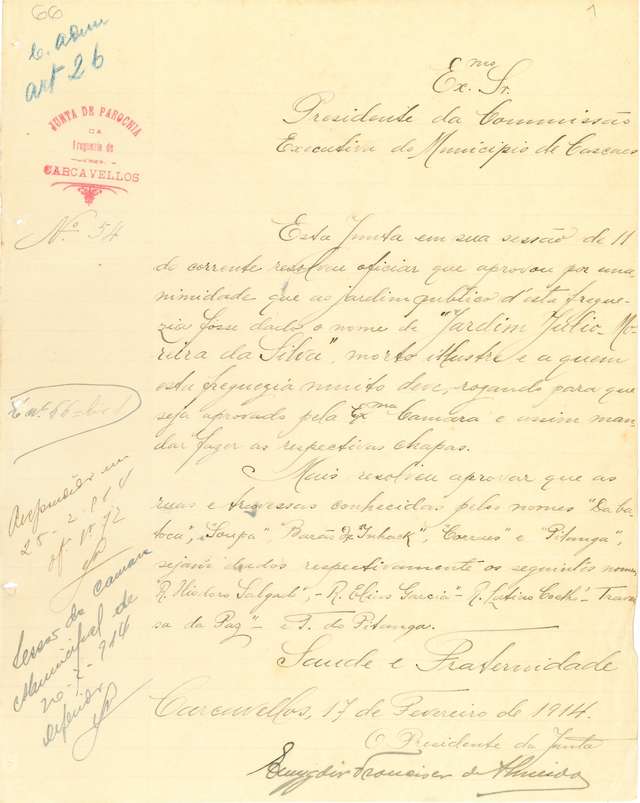 66
1
C. adm
art 26
JUNTA DE PAROCHIA
DA
Freguezia de
CARCAVELLOS
Nº 54
Exmo Sr.
Presidente da Commissão
Executiva do Municipio de Cascaes
Esta Junta em sua sessão de 11
do corrente resolveu oficiar que aprovou por una-
nimidade que ao jardim publico d'esta fregue-
zia fôsse dado o nome de "Jardim Julio Mo-
reira da Silva", morto illustre e a quem
esta freguezia muito deve, rogando para que
seja aprovado pela Exma Camara e assim man-
dar fazer as respectivas chapas.
Mais resolveu aprovar que as
ruas e travessas conhecidas pelos nomes "Da ba-
toca", "Soupa", "Barão de", "Corvos" e "Pitunga",
sejam dados respectivamente os seguintes nomes
"R. Heliodoro Salgado", - R. Elias Garcia" - R. Latino Coelho - Traves-
sa da Paz" - e T. do Pitunga.
Saude e Fraternidade
Carcavellos, 17 de Fevereiro de 1914.
O Presidente da Junta
Francisco de Almeida
Respondido em
25-2-914
of. nº 72
Sessão da Camara
Municipal de
20-2-914
deferido